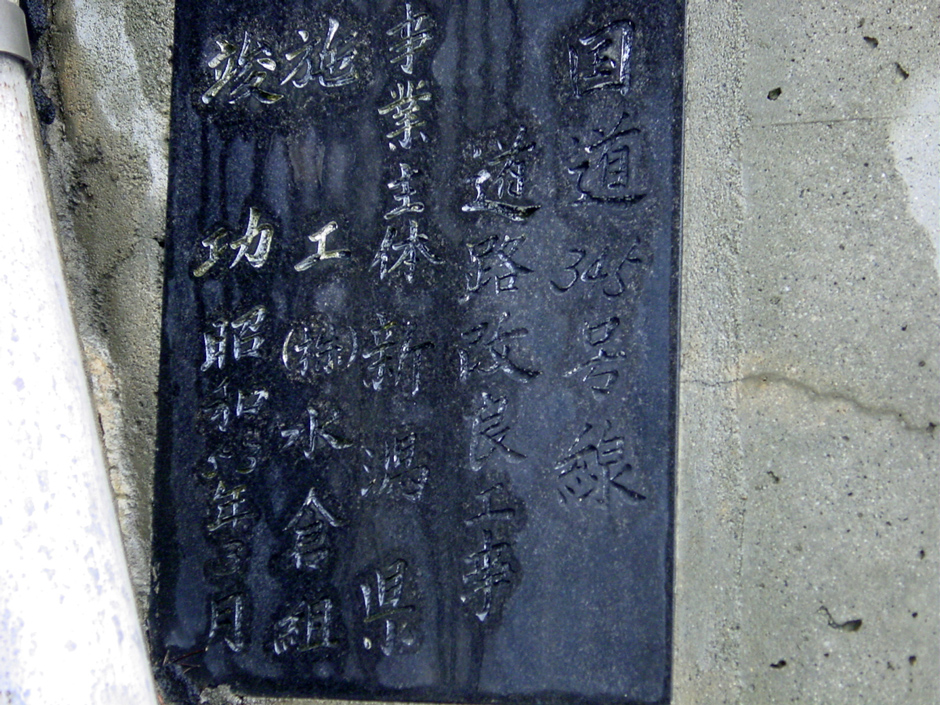 国道345号線
道路改良工事
事業主体 新潟県
施工 (株)水倉組
竣功 昭和 年 月